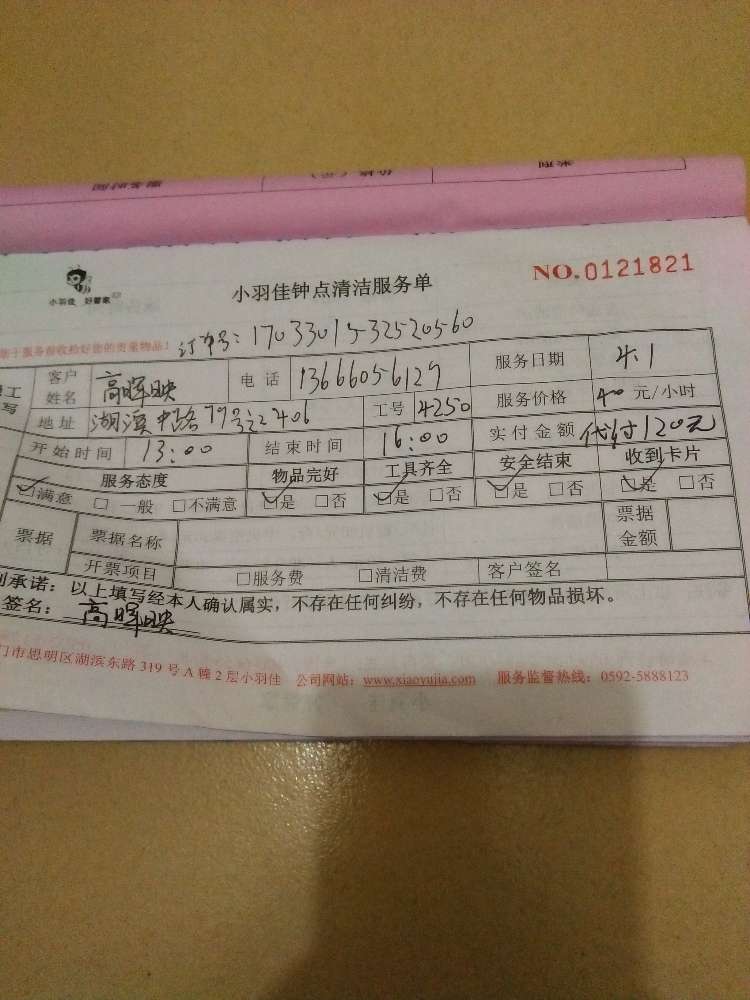 小羽佳 好管家
小羽佳钟点清洁服务单
NO.0121821
服务前收拾好您的贵重物品!
订单号: 1703301532520560
工 客户姓名 高晖映 电话 13666056129 服务日期 4.1
写 地址 湖滨中路79号之2406 工号 4250 服务价格 40 元/小时
开始时间 13:00 结束时间 16:00 实付金额 代付120元
服务态度 物品完好 工具齐全 安全结束 收到卡片
☑满意 □ 一般 □不满意 ☑是 □否 ☑是 □否 ☑是 □否 ☑是 □否
票据 票据名称 票据金额
开票项目 □服务费 □清洁费 客户签名
承诺: 以上填写经本人确认属实,不存在任何纠纷,不存在任何物品损坏。
签名: 高晖映
门市思明区湖滨东路 319 号 A 幢 2 层小羽佳 公司网站: www.xiaoyujia.com 服务监督热线: 0592-5888123